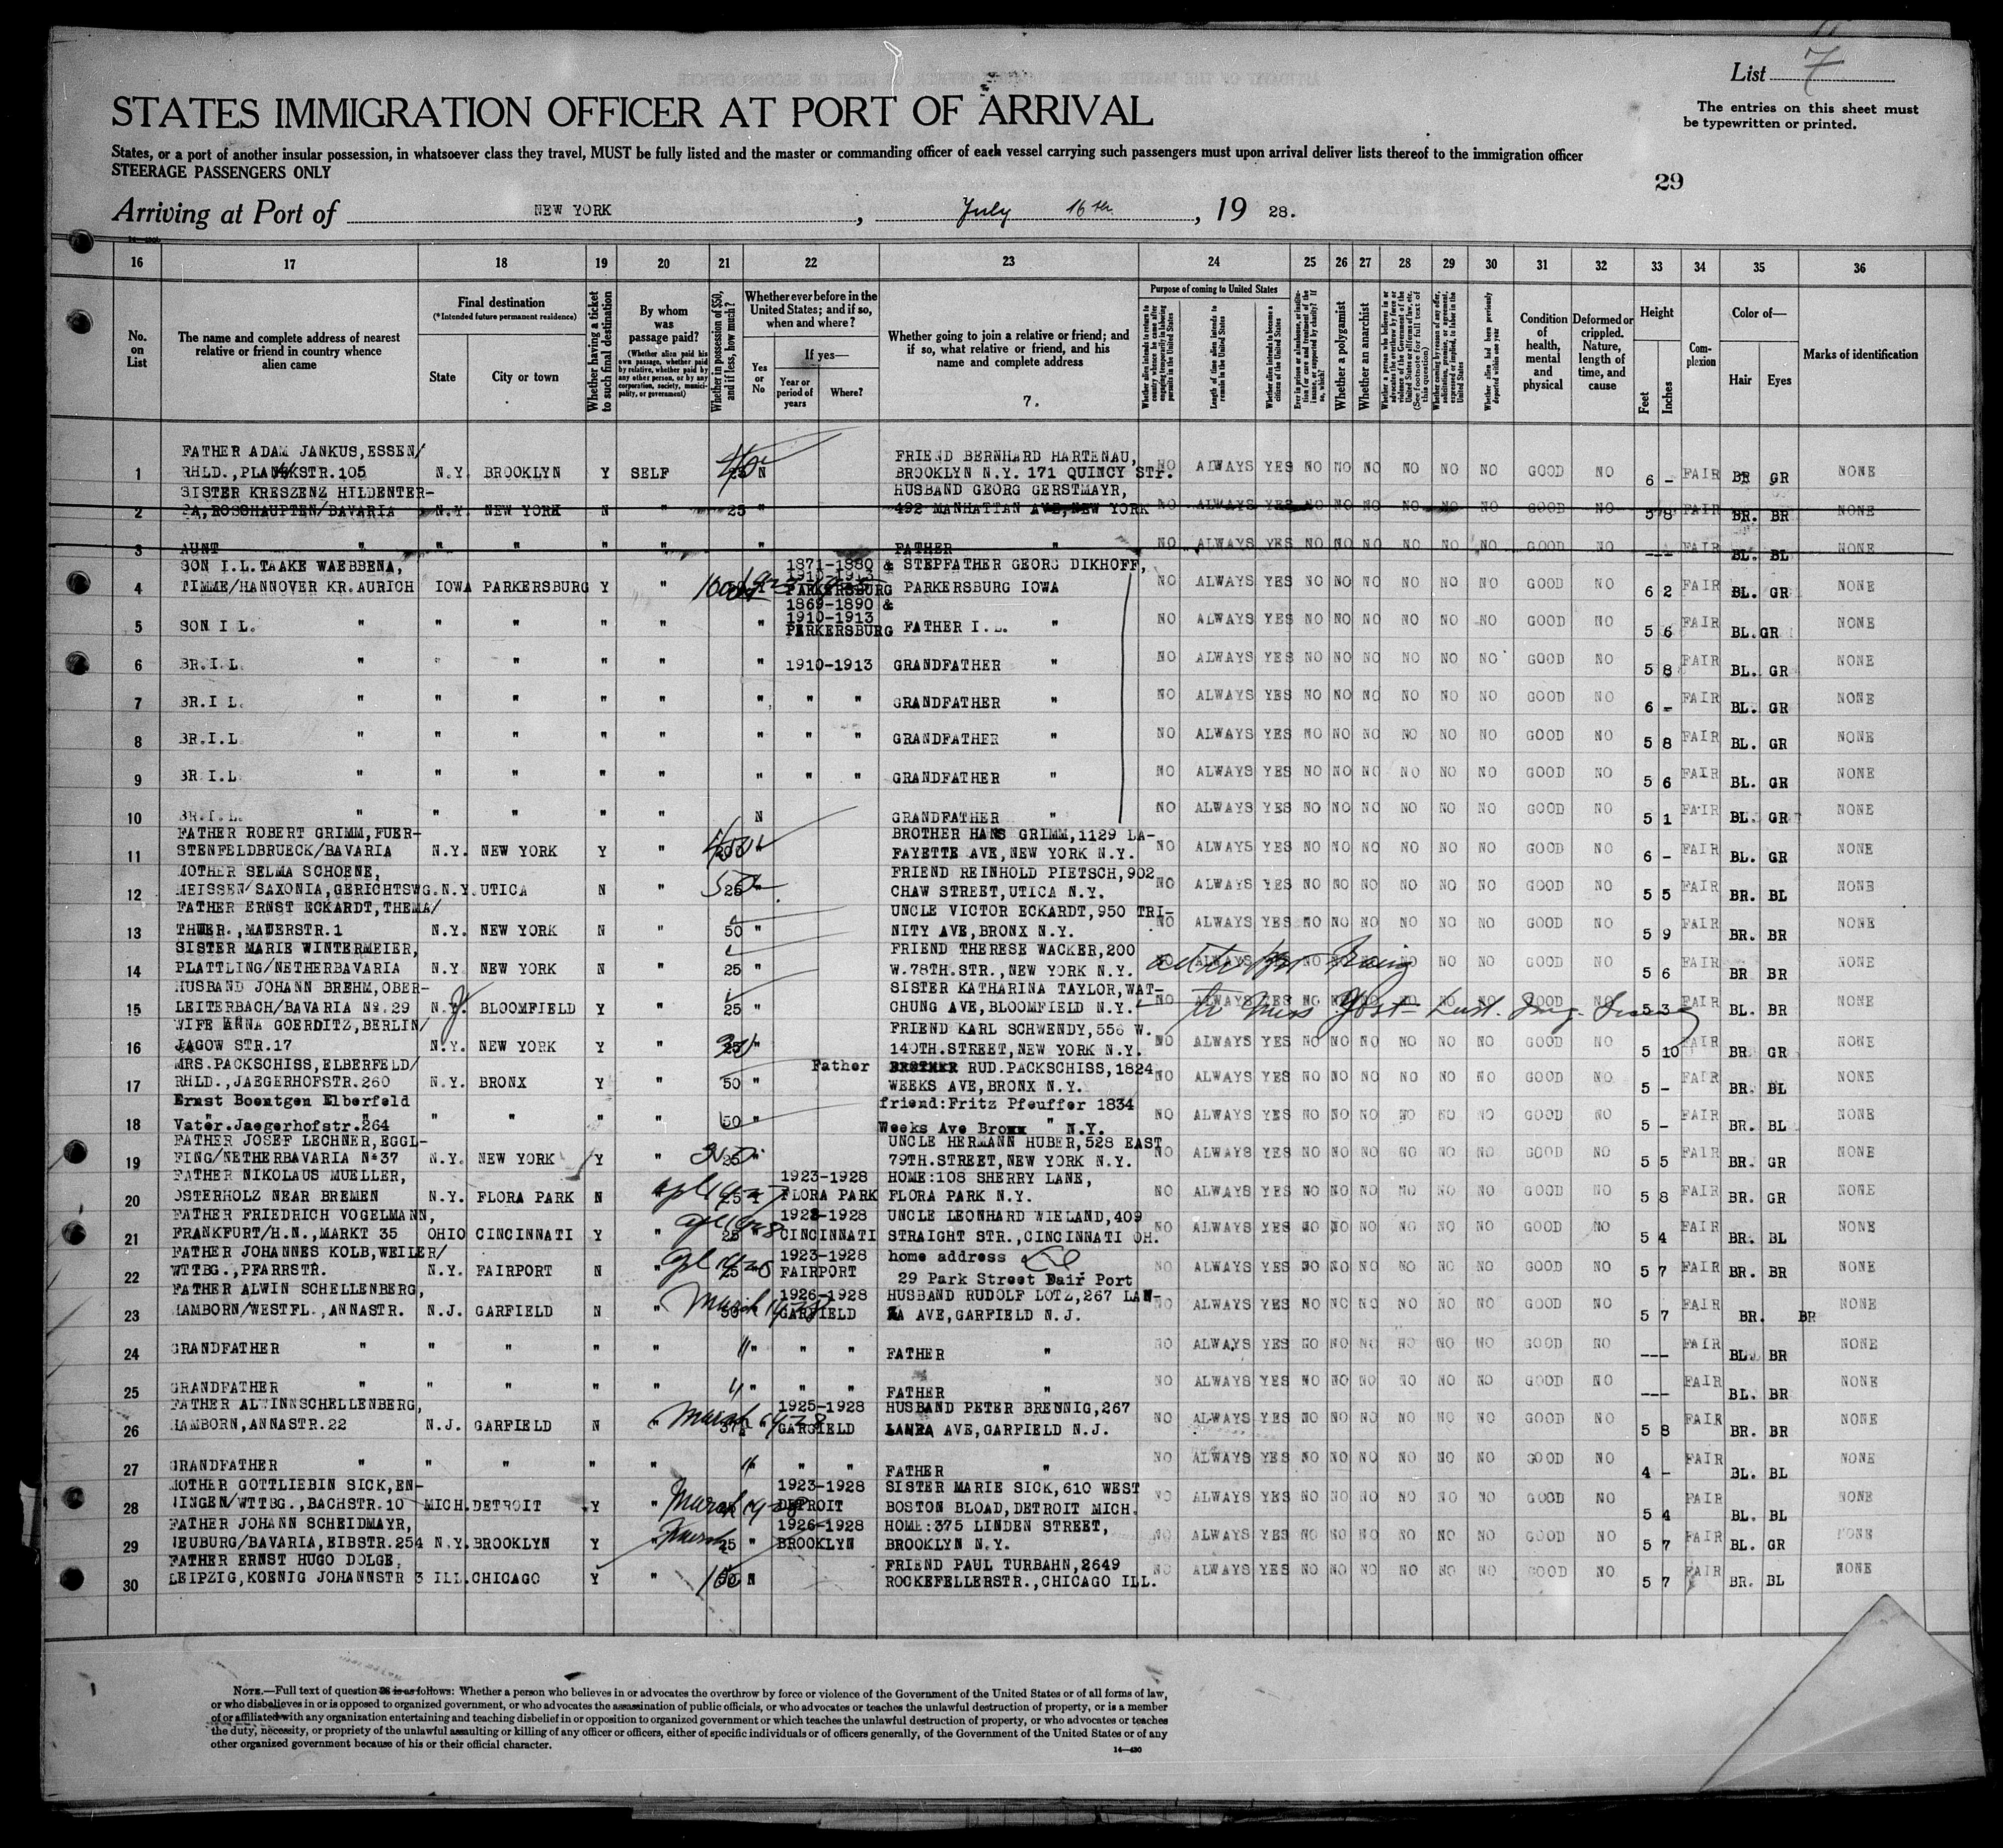 List 7
The entries on this sheet must
be typewritten or printed.
STATES IMMIGRATION OFFICER AT PORT OF ARRIVAL
States, or a port of another insular possession, in whatsoever class they travel, MUST be fully listed and the master or commanding officer of each vessel carrying such passengers must upon arrival deliver lists thereof to the immigration officer
STEERAGE PASSENGERS ONLY
29
Arriving at Port of NEW YORK , July 16th , 19 28.
16 17 18 19 20 21 22 23 24 25 26 27 28 29 30 31 32 33 34 35 36
No. on List
The name and complete address of nearest relative or friend in country whence alien came
Final destination
(*Intended future permanent residence)
State
City or town
Whether having a ticket to such final destination
By whom was passage paid?
(Whether alien paid his own passage, whether paid by relative, whether paid by any other person, or by any corporation, society, municipality, or government)
Whether in possession of $50, and if less, how much?
Whether ever before in the United States; and if so, when and where?
Yes or No
If yes—
Year or period of years
Where?
Whether going to join a relative or friend; and if so, what relative or friend, and his name and complete address
7.
Purpose of coming to United States
Whether alien intends to return to country whence he came after engaging temporarily in laboring pursuits in the United States
Length of time alien intends to remain in the United States
Whether alien intends to become a citizen of the United States
Whether a polygamist
Whether an anarchist
Condition of health, mental and physical
Deformed or crippled. Nature, length of time, and cause
Height
Feet
Inches
Complexion
Color of—
Hair
Eyes
Marks of identification
FATHER ADAM JANKUS, ESSEN/ FRIEND BERNHARD HARTENAU,
1 RHLD., STR.105 N.Y. BROOKLYN Y SELF N BROOKLYN N.Y. 171 QUINCY STr. NO ALWAYS YES NO NO NO NO NO NO GOOD NO 6 - FAIR BR GR NONE
SISTER KRESZENZ HILDENTER- HUSBAND GEORG GERSTMAYR,
2 PA, ROSSHAUPTEN/BAVARIA N.Y. NEW YORK N " 25 " 492 MANHATTAN AVE, NEW YORK NO ALWAYS YES NO NO NO NO NO NO GOOD NO 5 8 FAIR BR. BR NONE
3 AUNT " " " " " " FATHER " NO ALWAYS YES NO NO NO NO NO NO GOOD NO --- FAIR BL. BL NONE
SON I.L. TAAKE WAEBBENA, 1871-1880 & STEPFATHER GEORG DIKHOFF,
1910-1913
4 TIMME/HANNOVER KR.AURICH IOWA PARKERSBURG Y " PARKERSBURG PARKERSBURG IOWA NO ALWAYS YES NO NO NO NO NO NO GOOD NO 6 2 FAIR BL. GR NONE
1869-1890 &
1910-1913
5 SON I L. " " " " " " PARKERSBURG FATHER I.L. " NO ALWAYS YES NO NO NO NO NO NO GOOD NO 5 6 FAIR BL. GR NONE
6 BR.I.L. " " " " " " 1910-1913 GRANDFATHER " NO ALWAYS YES NO NO NO NO NO NO GOOD NO 5 8 FAIR BL. GR NONE
7 BR.I L. " " " " " " " " GRANDFATHER " NO ALWAYS YES NO NO NO NO NO NO GOOD NO 6 - FAIR BL. GR NONE
8 BR.I.L. " " " " " " " " GRANDFATHER " NO ALWAYS YES NO NO NO NO NO NO GOOD NO 5 8 FAIR BL. GR NONE
9 BR.I.L. " " " " " " " " GRANDFATHER " NO ALWAYS YES NO NO NO NO NO NO GOOD NO 5 6 FAIR BL. GR NONE
10 BR.I.L. " " " " " N GRANDFATHER " NO ALWAYS YES NO NO NO NO NO NO GOOD NO 5 1 FAIR BL. GR NONE
FATHER ROBERT GRIMM, FUER- BROTHER HANS GRIMM, 1129 LA-
11 STENFELDBRUECK/BAVARIA N.Y. NEW YORK Y " " FAYETTE AVE, NEW YORK N.Y. NO ALWAYS YES NO NO NO NO NO NO GOOD NO 6 - FAIR BL. GR NONE
MOTHER SELMA SCHOENE, FRIEND REINHOLD PIETSCH, 902
12 MEISSEN/SAXONIA, GERICHTSWG. N.Y. UTICA N " 25 " CHAW STREET, UTICA N.Y. NO ALWAYS YES NO NO NO NO NO NO GOOD NO 5 5 FAIR BR. BL NONE
FATHER ERNST ECKARDT, THEMA/ UNCLE VICTOR ECKARDT, 950 TRI-
13 THUER., MAUERSTR.1 N.Y. NEW YORK N " 50 " NITY AVE, BRONX N.Y. NO ALWAYS YES NO NO NO NO NO NO GOOD NO 5 9 FAIR BR. BR NONE
SISTER MARIE WINTERMEIER, FRIEND THERESE WACKER, 200
14 PLATTLING/NETHERBAVARIA N.Y NEW YORK N " 25 " W.78TH.STR., NEW YORK N.Y. NO ALWAYS YES NO NO NO NO NO NO GOOD NO 5 6 FAIR BR BR NONE
HUSBAND JOHANN BREHM, OBER- SISTER KATHARINA TAYLOR, WAT-
15 LEITERBACH/BAVARIA No.29 N.J. BLOOMFIELD Y " 25 " CHUNG AVE, BLOOMFIELD N.Y. NO ALWAYS YES NO NO NO NO NO NO GOOD NO 5 3 FAIR BL. BR NONE
to Miss Yost - Luth.
WIFE ANNA GOERDITZ, BERLIN/ FRIEND KARL SCHWENDY, 556 W.
16 JAGOW STR.17 N.Y. NEW YORK Y " " 140TH.STREET, NEW YORK N.Y. NO ALWAYS YES NO NO NO NO NO NO GOOD NO 5 10 FAIR BR. GR NONE
MRS.PACKSCHISS, ELBERFELD/ Father BROTHER RUD.PACKSCHISS, 1824
17 RHLD., JAEGERHOFSTR.260 N.Y. BRONX Y " 50 " WEEKS AVE, BRONX N.Y. NO ALWAYS YES NO NO NO NO NO NO GOOD NO 5 - FAIR BR. BL NONE
Ernst Boentgen Elberfeld friend: Fritz Pfeuffer 1834
18 Vater. Jaegerhofstr.264 " " " " 50 " Weeks Ave Bronx " N.Y. NO ALWAYS YES NO NO NO NO NO NO GOOD NO 5 - FAIR BR. BL NONE
FATHER JOSEF LECHNER, EGGL- UNCLE HERMANN HUBER, 528 EAST
19 FING/NETHERBAVARIA No 37 N.Y. NEW YORK Y " 25 " 79TH.STREET, NEW YORK N.Y. NO ALWAYS YES NO NO NO NO NO NO GOOD NO 5 5 FAIR BR. GR NONE
FATHER NIKOLAUS MUELLER, 1923-1928 HOME:108 SHERRY LANE,
20 OSTERHOLZ NEAR BREMEN N.Y. FLORA PARK N " 25 Y FLORA PARK FLORA PARK N.Y. NO ALWAYS YES NO NO NO NO NO NO GOOD NO 5 8 FAIR BR. GR NONE
FATHER FRIEDRICH VOGELMANN, 1928-1928 UNCLE LEONHARD WIELAND, 409
21 FRANKFURT/H.N., MARKT 35 OHIO CINCINNATI Y " 25 " CINCINNATI STRAIGHT STR., CINCINNATI OH. NO ALWAYS YES NO NO NO NO NO NO GOOD NO 5 4 FAIR BR. BL NONE
FATHER JOHANNES KOLB, WEILER/ 1923-1928 home address
22 WTTBG., PFARRSTR. N.Y. FAIRPORT N " 25 FAIRPORT 29 Park Street Fair Port NO ALWAYS YES NO NO NO NO NO NO GOOD NO 5 7 FAIR BR. BR NONE
FATHER ALWIN SCHELLENBERG, 1926-1928 HUSBAND RUDOLF LOTZ, 267 LAN-
23 HAMBORN/WESTFL., ANNASTR. N.J. GARFIELD N " March 1928 GARFIELD ZA AVE, GARFIELD N.J. NO ALWAYS YES NO NO NO NO NO NO GOOD NO 5 7 FAIR BR. BR NONE
24 GRANDFATHER " " " " " " " " FATHER " NO ALWAYS YES NO NO NO NO NO NO GOOD NO --- FAIR BL. BR NONE
25 GRANDFATHER " " " " " " " " FATHER " NO ALWAYS YES NO NO NO NO NO NO GOOD NO --- FAIR BL. BR NONE
FATHER ALWINNSCHELLENBERG, 1925-1928 HUSBAND PETER BREUNIG, 267
26 HAMBORN, ANNASTR.22 N.J. GARFIELD N " March 1928 GARFIELD LANZA AVE, GARFIELD N.J. NO ALWAYS YES NO NO NO NO NO NO GOOD NO 5 8 FAIR BR. BR NONE
27 GRANDFATHER " " " " " " " " FATHER " NO ALWAYS YES NO NO NO NO NO NO GOOD NO 4 - FAIR BL. BL NONE
MOTHER GOTTLIEBIN SICK, EN- 1923-1928 SISTER MARIE SICK, 610 WEST
28 NINGEN/WTTBG., BACHSTR.10 MICH. DETROIT Y " March 1928 DETROIT BOSTON BLOAD, DETROIT MICH. NO ALWAYS YES NO NO NO NO NO NO GOOD NO 5 4 FAIR BL. BL NONE
FATHER JOHANN SCHEIDMAYR, 1926-1928 HOME:375 LINDEN STREET,
29 NEUBURG/BAVARIA, EIBSTR.254 N.Y. BROOKLYN Y " March 25 " BROOKLYN BROOKLYN N.Y. NO ALWAYS YES NO NO NO NO NO NO GOOD NO 5 7 FAIR BL. GR NONE
FATHER ERNST HUGO DOLGE, FRIEND PAUL TURBAHN, 2649
30 LEIPZIG, KOENIG JOHANNSTR 3 ILL. CHICAGO Y " N ROCKEFELLERSTR., CHICAGO ILL. NO ALWAYS YES NO NO NO NO NO NO GOOD NO 5 7 FAIR BR. BL NONE
NOTE.—Full text of question 28 is as follows: Whether a person who believes in or advocates the overthrow by force or violence of the Government of the United States or of all forms of law,
or who disbelieves in or is opposed to organized government, or who advocates the assassination of public officials, or who advocates or teaches the unlawful destruction of property, or is a member
of or affiliated with any organization entertaining and teaching disbelief in or opposition to organized government or which teaches the unlawful destruction of property, or who advocates or teaches
the duty, necessity, or propriety of the unlawful assaulting or killing of any officer or officers, either of specific individuals or of officers generally, of the Government of the United States or of any
other organized government because of his or their official character.
14—430